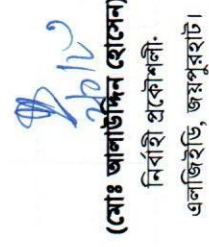 (মোঃ আলাউদ্দিন হোসেন)
নির্বাহী প্রকৌশলী
এলজিইডি, জয়পুরহাট।